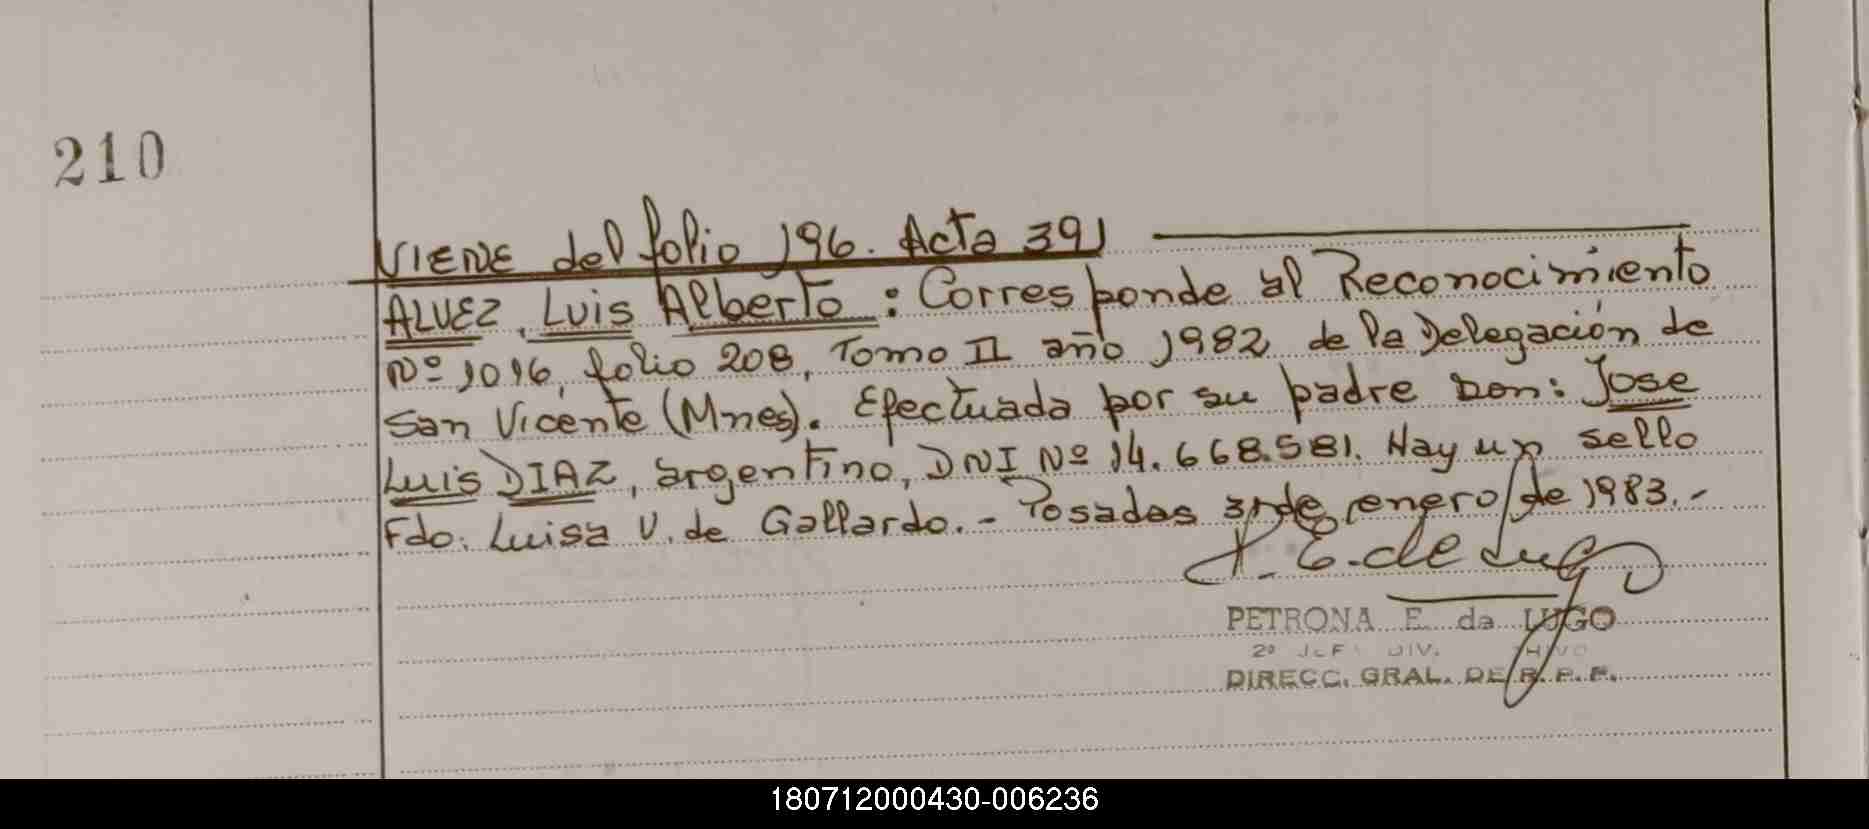 210
VIENE del folio 196. Acta 391
ALVEZ, Luis Alberto: Corresponde al Reconocimiento
Nº 1016, folio 208, Tomo II año 1982 de la Delegación de
San Vicente (Mnes). Efectuada por su padre Don: Jose
Luis DIAZ, argentino, DNI Nº 14.668.581. Hay un sello
Fdo: Luisa V. de Gallardo.- Posadas 31 de enero de 1983.-
P. E. de Lugo
PETRONA E. de LUGO
2º DIV.
DIRECC. GRAL. DE R. P. P.
180712000430-006236